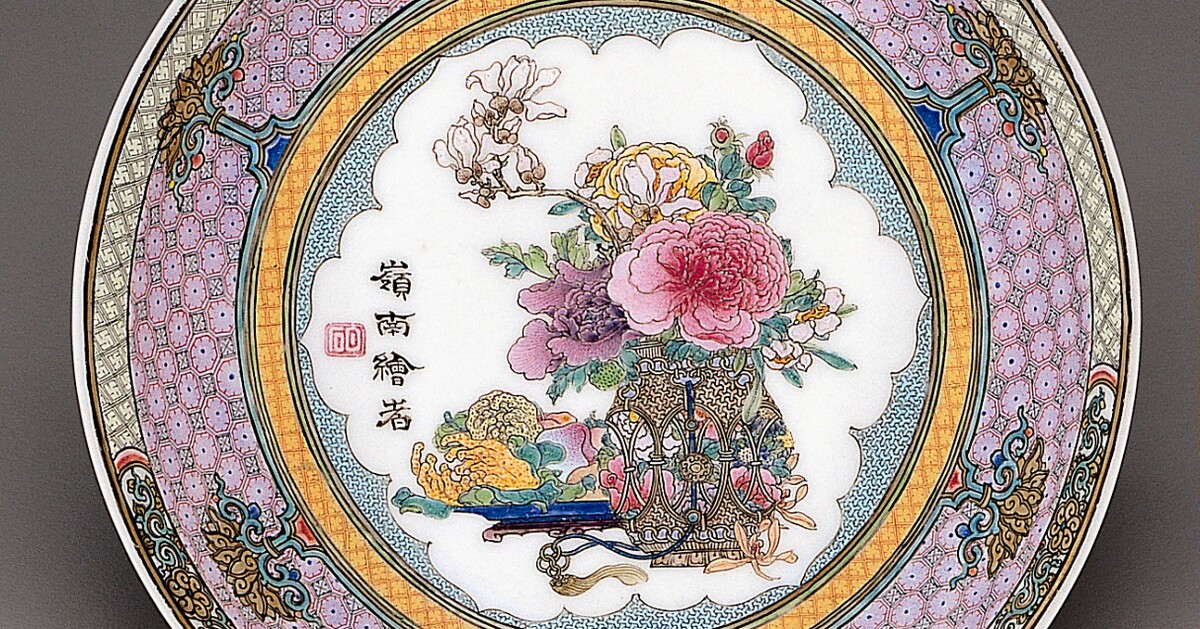 嶺南繪者